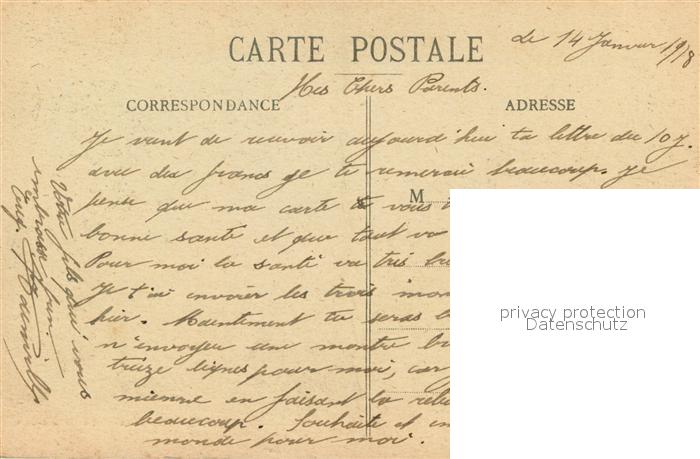 CARTE POSTALE
Le 14 Janvier 1918
Mes Chers Parents.
CORRESPONDANCE
ADRESSE
Je vient de recevoir aujourd'hui ta lettre du 10 J.
avec dix francs je te remercie beaucoup. Je
M
pense que ma carte te vous
bonne santé et que tout va
Pour moi la santé va très
Je t'ai envoier les trois
hier. Maintement tu seras
n'envoyer une montre
treize lignes pour moi, car
mienne en faisant la
beaucoup. Souhaite
monde pour moi.
Votre fils qui vous
embrasse
privacy protection
Datenschutz